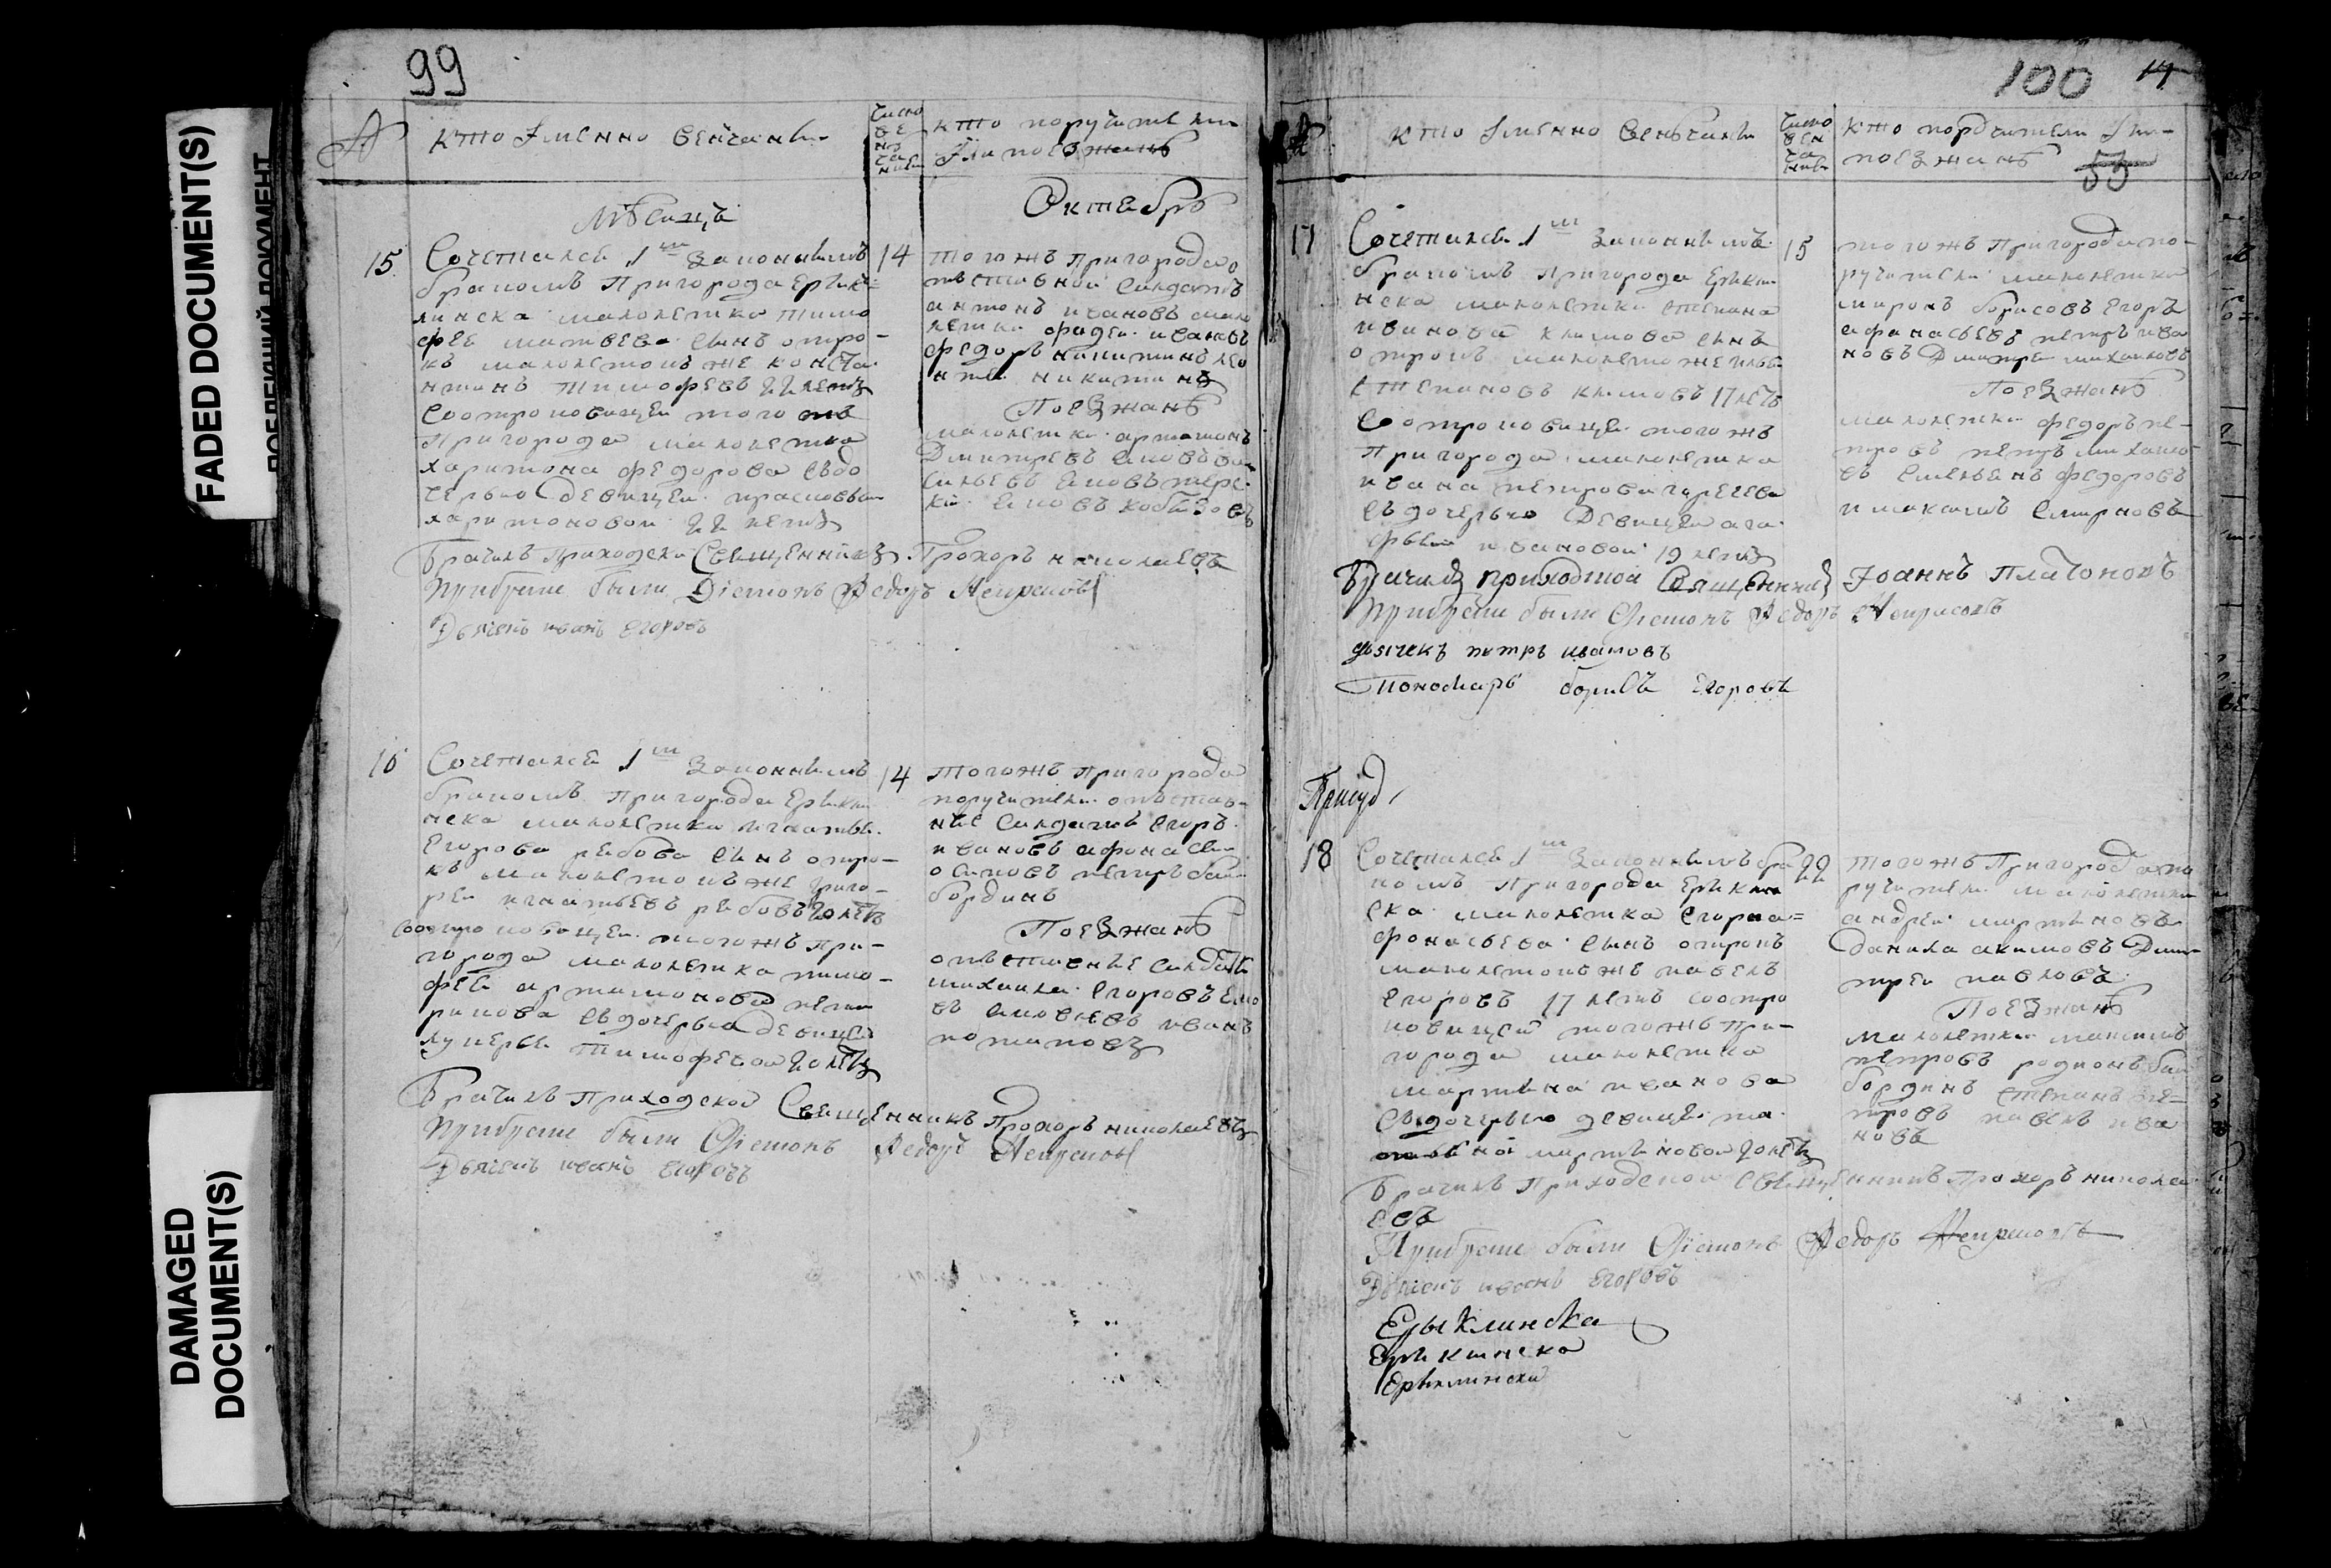 FADED DOCUMENT(S)
DAMAGED
DOCUMENT(S)
99
№
кто Именно венчаны
число
ве
нч
ча
ния
кто поручители
Или поезжанъ
Мѣсяцъ
Октябръ
15
Сочетался 1м Законнымъ
14
бракомъ Пригорода Ерык=
линска малолетка тимо
фея матвеева сынъ отро-
къ малолетокъ же конста
нтинъ тимофеевъ 22 летъ
соотроковицеи того жъ
Пригорода малолетка
харитона федорова здо
черью девицеи прасковьи
харитоновои 22 летъ
тогожъ Пригорода о
тставнои салдатъ
антонъ ивановъ мало
летки фадеи ивановъ
федоръ никитинъ лео
нтеи никитинъ
Поезжанъ
малолетки артамонъ
Дмитревъ
Брачилъ Приходски Священникъ Прохоръ николаевъ
Прибраке были Діяконъ Федоръ
Дьячекъ иванъ Егоровъ
16
Сочетался 1м Законнымъ
14
бракомъ Пригорода Ерыкли
нска малолетка игнатья
Егорова рябова сынъ отро-
къ малолетокъ же григо-
реи игнатьевъ рябовъ 20 летъ
соотроковицеи тогожъ при-
города малолетка тимо-
фея артамонова
здочерью девицеи
лукерьи тимофевои 20 летъ
Тогожъ Пригорода
поручители отстав-
ные салдаты Егоръ
ивановъ афонасеи
осиповъ петръ бай
бординъ
Поезжанъ
отставные салдаты
михаила Егоровъ
иванъ
потаповъ
Брачилъ Приходскои Священникъ Прохоръ николаевъ
Прибраке были Діяконъ Федоръ
Дьячекъ иванъ Егоровъ
100
№
кто Именно венчаны
число
вен
ча
ния
кто пордчители Или
поезжанъ
53
17
Сочетался 1м Законнымъ
15
бракомъ Пригорода Ерыкли
нска малолетки степана
иванова климова сынъ
отрокъ малолетоже илья
степановъ климовъ 17 летъ
Соотроковицеи тогожъ
Пригорода малолетка
ивана петрова горечева
здочерью девицеи ага
фьеи ивановои 19 летъ
тогожъ Пригорода по-
ручители малолетки
миронъ борисовъ Егоръ
афанасьевъ петръ ива
новъ Дмитреи михаиловъ
Поезжанъ
малолетки федоръ пе-
тровъ петръ михаило
въ емельянъ федоровъ
и максимъ Смирновъ
Брачилъ приходской Священникъ Іоаннъ Платоновъ
Прибраке были Діяконъ Федоръ
дьячекъ петръ ивановъ
Пономаръ борисъ Егоровъ
18
Сочетался 1м Законнымъ бра
22
комъ Пригорода Ерыклин
ска малолетка Егора а=
фонасьева сынъ отрокъ
малолетокъ же павелъ
Егоровъ 17 летъ соотро
ковицеи тогожъ При-
города малолетка
мартына иванова
Сьдочерью девицеи та
мартыновои 20 летъ
тогожъ Пригорода по
ручители малолетки
андреи мартыновъ
данила акимовъ Дми-
треи павловъ
Поезжанъ
малолетки максимъ
петровъ родионъ бай
бординъ степанъ пе=
тровъ павелъ ива
новъ
Брачилъ Приходскои Священникъ Прохоръ никола
евъ
Прибраке были Діяконъ Федоръ
Дьячекъ иванъ Егоровъ
Ерыклинска
Ерыклинска
Ерыклински